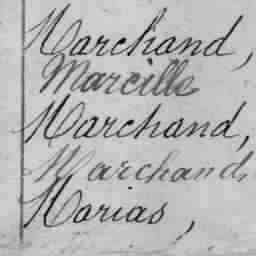 Marchand,
Marcille
Marchand,
Marchand,
Marias,